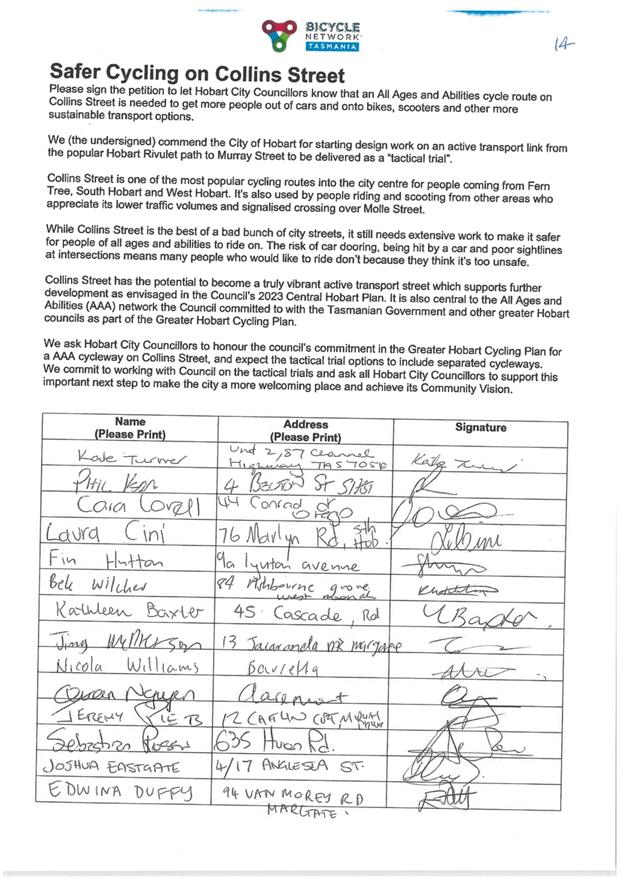 BICYCLE
NETWORK
TASMANIA
14
Safer Cycling on Collins Street
Please sign the petition to let Hobart City Councillors know that an All Ages and Abilities cycle route on
Collins Street is needed to get more people out of cars and onto bikes, scooters and other more
sustainable transport options.
We (the undersigned) commend the City of Hobart for starting design work on an active transport link from
the popular Hobart Rivulet path to Murray Street to be delivered as a "tactical trial".
Collins Street is one of the most popular cycling routes into the city centre for people coming from Fern
Tree, South Hobart and West Hobart. It's also used by people riding and scooting from other areas who
appreciate its lower traffic volumes and signalised crossing over Molle Street.
While Collins Street is the best of a bad bunch of city streets, it still needs extensive work to make it safer
for people of all ages and abilities to ride on. The risk of car dooring, being hit by a car and poor sightlines
at intersections means many people who would like to ride don't because they think it's too unsafe.
Collins Street has the potential to become a truly vibrant active transport street which supports further
development as envisaged in the Council's 2023 Central Hobart Plan. It is also central to the All Ages and
Abilities (AAA) network the Council committed to with the Tasmanian Government and other greater Hobart
councils as part of the Greater Hobart Cycling Plan.
We ask Hobart City Councillors to honour the council's commitment in the Greater Hobart Cycling Plan for
a AAA cycleway on Collins Street, and expect the tactical trial options to include separated cycleways.
We commit to working with Council on the tactical trials and ask all Hobart City Councillors to support this
important next step to make the city a more welcoming place and achieve its Community Vision.
Name (Please Print) Address (Please Print) Signature
Kate Turner Unit 2, 87 Channel
Highway TAS 7050
4 ST
Cara Lovell 44 Conrad dr
Otago
Laura Cini 76 Marlyn Rd, Sth
Hob
Fin Hutton 9a lynton avenue
Bek Wilcher 84 Ashbourne grove
west moonah
Kathleen Baxter 45 Cascade, Rd K Baxter
13 Jacaranda margate
Nicola Williams Barretta
Nguyen Claremont
JEREMY 12
Sebastian 635 Huon Rd.
JOSHUA EASTGATE 4/17 ANGLESEA ST.
EDWINA DUFFY 94 VAN MOREY RD
MARGATE.